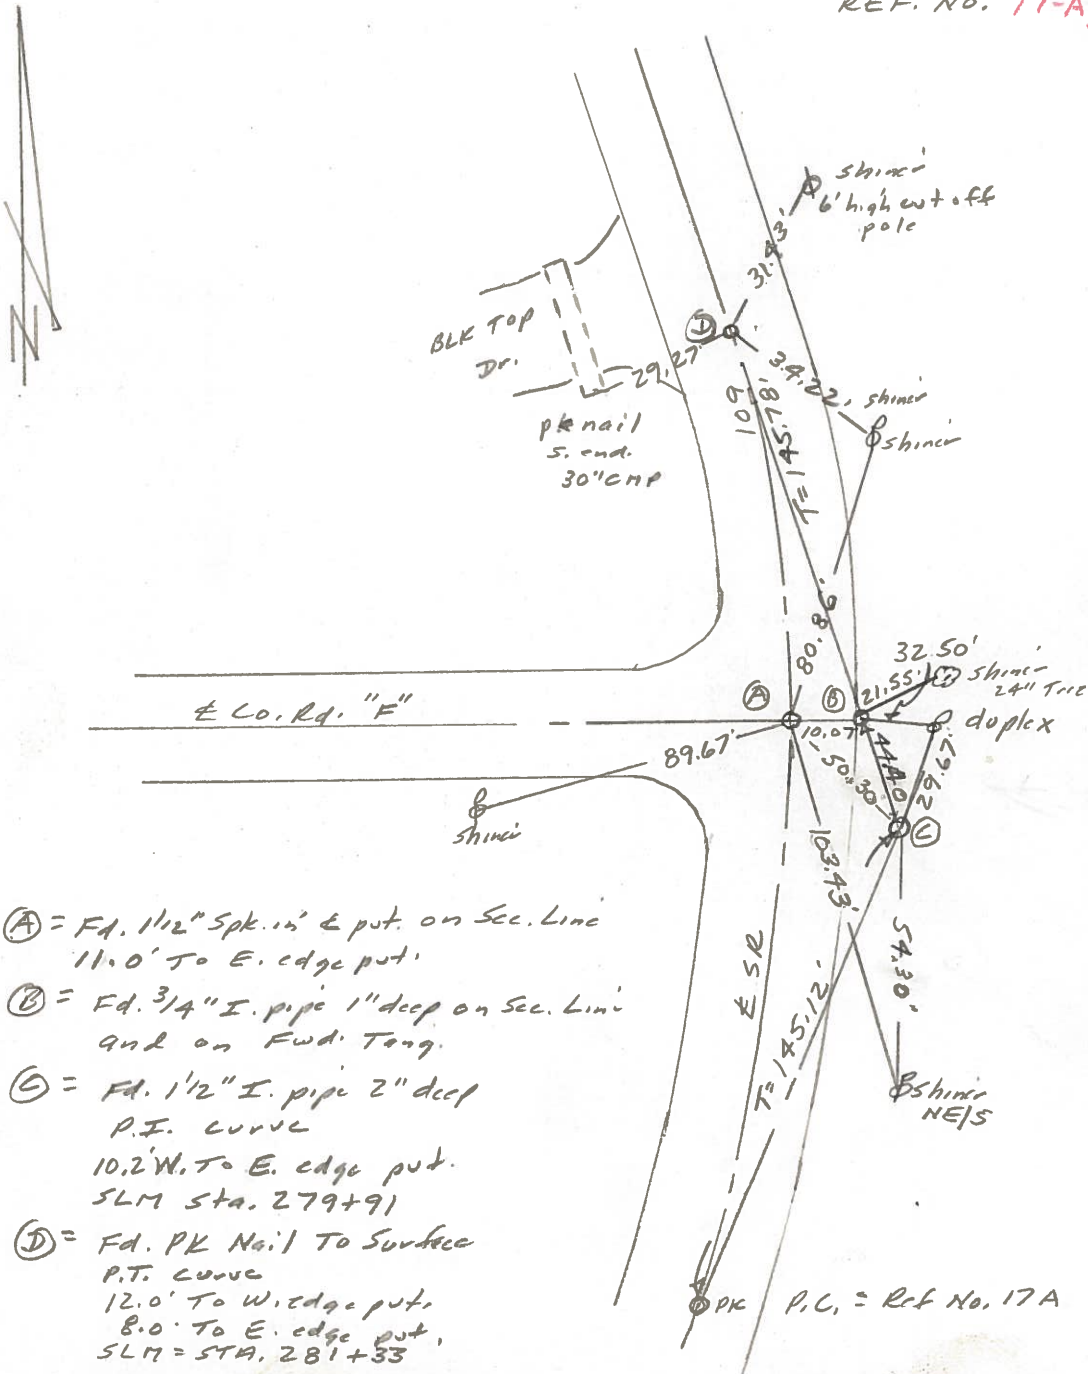 REF. NO. 17-A
shiner
6' high cut off
pole
31.43'
BLK TOP
Dr.
D
29.27'
34.22'
shiner
shiner
pk nail
S. end.
30" CMP
109
T=145.78'
80.86'
32.50'
21.55'
shiner
24" Tree
duplex
℄ Co. Rd. "F"
A
B
10.07'
89.67'
50.30'
44.40
29.67'
C
shiner
103.43'
54.30'
℄ SR
T=145.12'
shiner
NE/S
N
A = Fd. 1 1/2" Spk. in ℄ pvt. on Sec. Line
11.0' To E. edge pvt.
B = Fd. 3/4" I. pipe 1" deep on Sec. Line
and on Fwd. Tang.
C = Fd. 1 1/2" I. pipe 2" deep
P.I. curve
10.2' W. To E. edge pvt.
SLM Sta. 279+91
D = Fd. PK Nail To Surface
P.T. curve
12.0' To W. edge pvt.
8.0' To E. edge pvt.
SLM = STA. 281+33
PK P.C. = Ref No. 17A